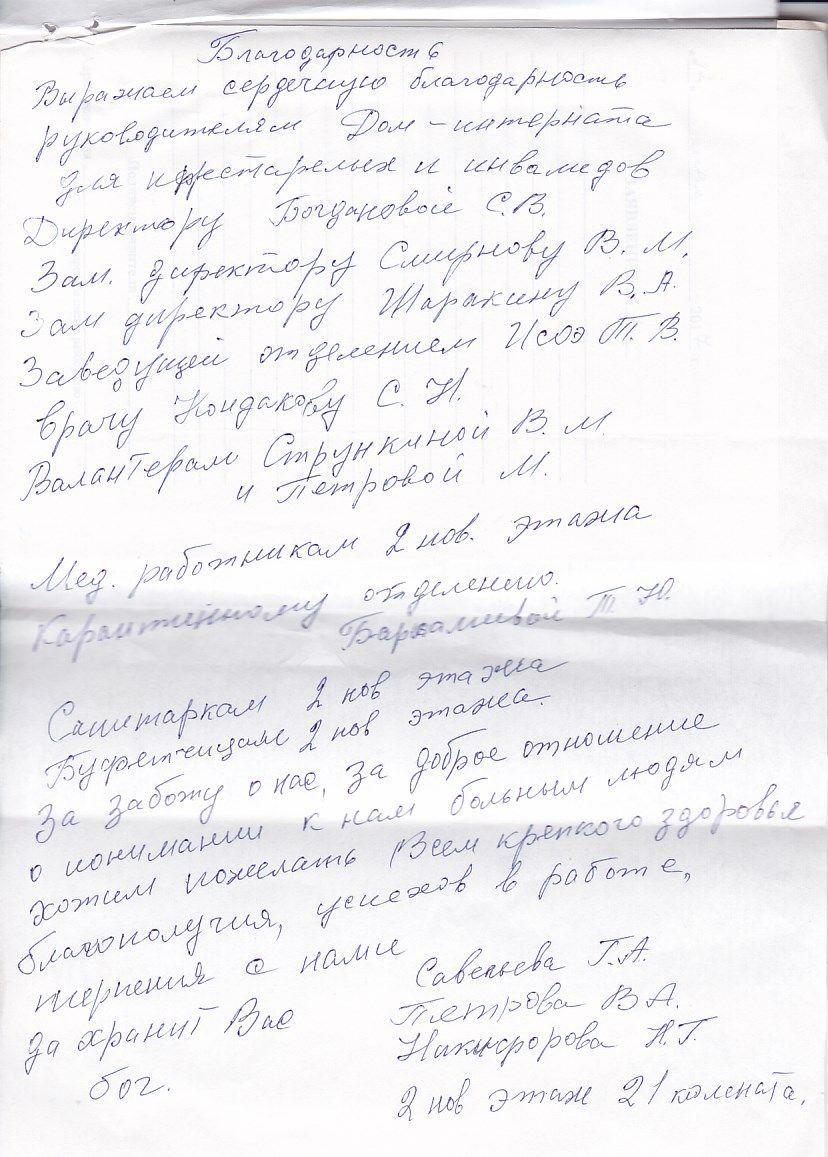 Благодарность
Выражаем сердечную благодарность
руководителям Дом-интерната
для престарелых и инвалидов
Директору Богдановой С.В.
Зам. директору Смирнову В. М.
Зам директору Шаракину В. А.
Заведущей отделением Исоэ Т. В.
врачу Кондакову С. Н.
Валантерам Стрункиной В. М
и Петровой М.
Мед. работникам 2 нов. этажа
Карантинному отделению.
Т. Ю.
Санитаркам 2 нов этажа
Буфетчицам 2 нов этажа.
За заботу о нас, за доброе отношение
о понимании к нам больным людям
хотим пожелать Всем крепкого здоровья
благополучия, успехов в работе,
терпения с нами
За хранит Вас
бог.
Савельева Г.А.
Петрова В А.
Никифорова Н.Г.
2 нов этаж 21 комната.